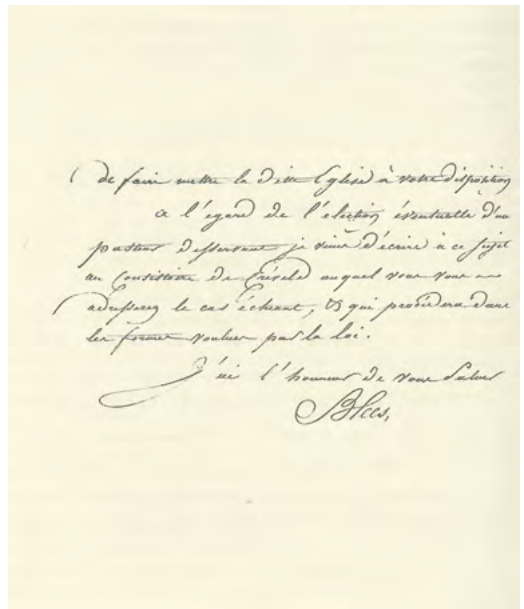 de faire mettre la ditte Eglise à votre disposition
a l'égard de l'election éventuelle d'un
pasteur desservant je viens d'écrire à ce sujet
au Consistoire de Créveld auquel vous vous
adresserez le cas échéant, & qui procédera dans
les formes voulues par la loi.
J'ai l'honneur de vous saluer